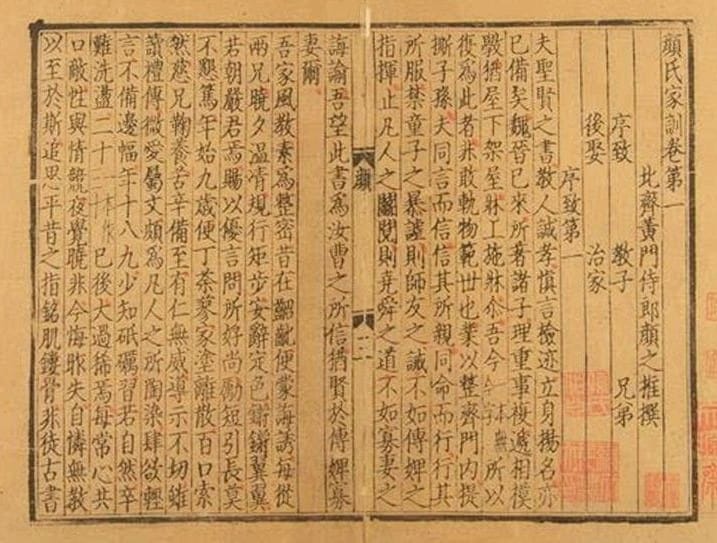 顔氏家訓卷第一
北齊黃門侍郎顔之推撰
序致 教子 兄弟
後娶 治家
序致第一
夫聖賢之書教人誠孝慎言檢迹立身揚名亦
已備矣魏晉已來所著諸子理重事複遞相模
斆猶屋下架屋牀上施牀尒吾今所以
復爲此者非敢軌物範世也業以整齊門内提
撕子孫夫同言而信信其所親同命而行行其
所服禁童子之暴謔則師友之誡不如傅婢之
指揮止凡人之鬭鬩則堯舜之道不如寡妻之
誨諭吾望此書爲汝曹之所信猶賢於傅婢寡
妻爾
顔一
吾家風教素爲整密昔在齠齔便蒙誨誘每從
兩兄曉夕温凊規行矩步安辭定色鏘鏘翼翼
若朝嚴君焉賜以優言問所好尚勵短引長莫
不懇篤年始九歲便丁荼蓼家塗離散百口索
然慈兄鞠養苦辛備至有仁無威導示不切雖
讀禮傳微愛屬文頗爲凡人之所陶染肆欲輕
言不備邊幅年十八九少知砥礪習若自然卒
難洗盪二十已後大過稀焉每常心共
口敵性與情競夜覺曉非今悔昨失自憐無教
以至於斯追思平昔之指銘肌鏤骨非徒古書